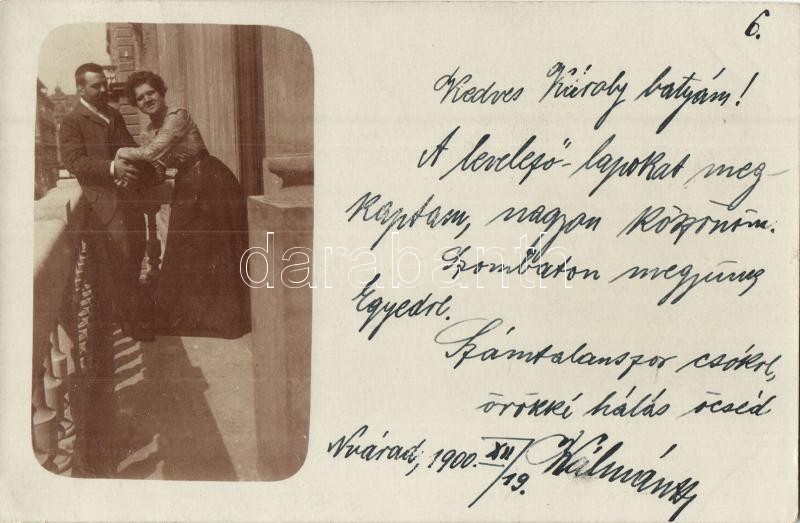 6.
Kedves Károly batyám!
A levelező-lapokat meg-
kaptam, nagyon köszönöm.
Szombaton megjünk
Egyedre.
Számtalanszor csókol,
örökké hálás öcséd
Nvárad, 1900. XII/19. Kálmán
darabanth.com